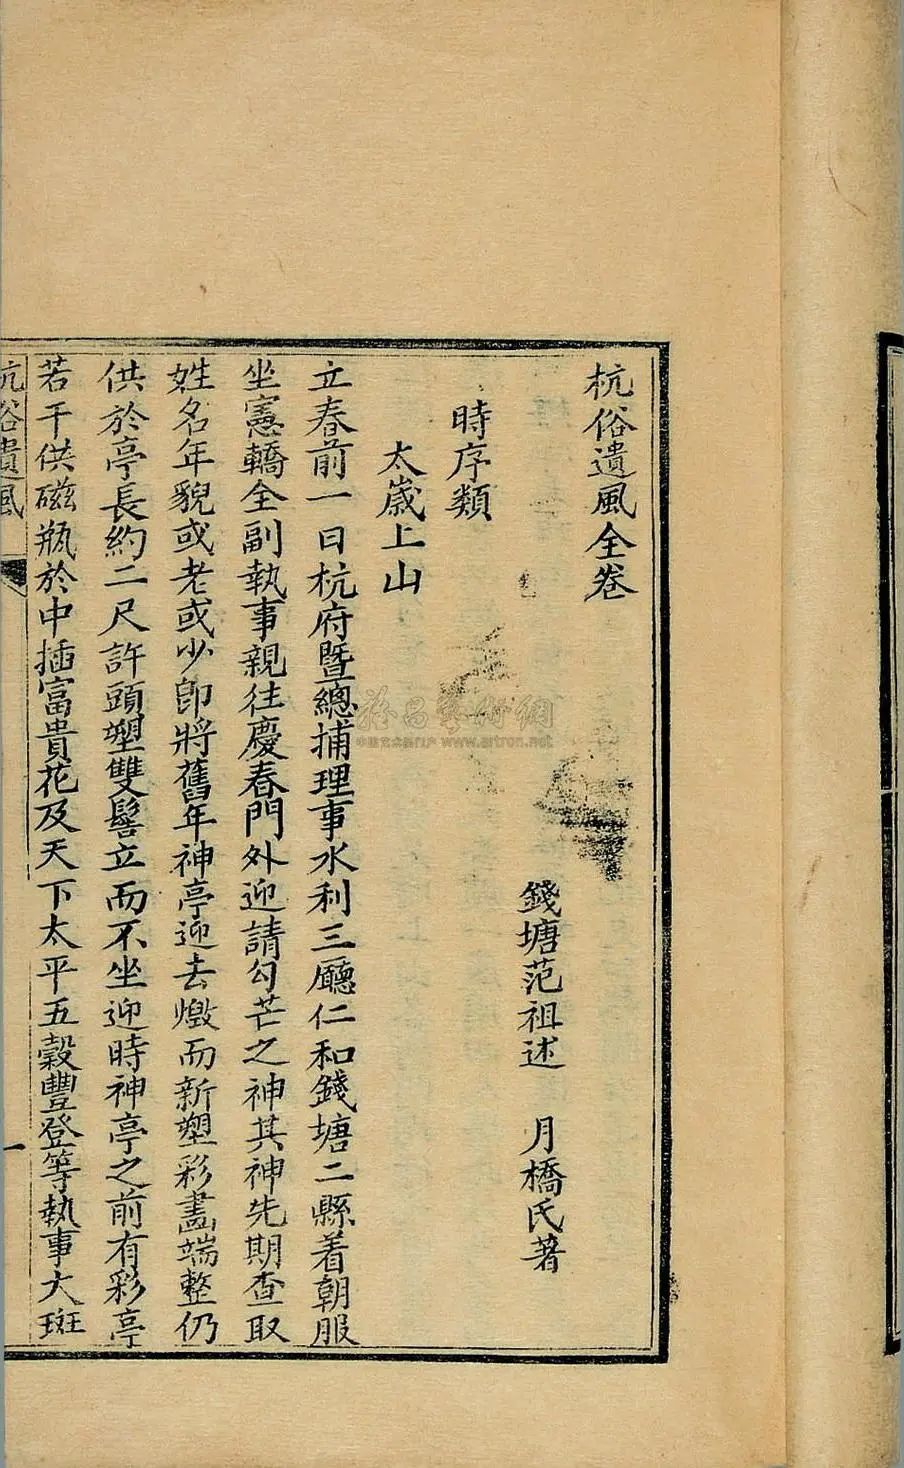 杭俗遺風全卷
錢塘范祖述 月橋氏著
時序類
太嵗上山
立春前一日杭府曁總捕理事水利三廳仁和錢塘二縣着朝服
坐憲轎全副執事親往慶春門外迎請勾芒之神其神先期查取
姓名年貌或老或少卽將舊年神亭迎去燬而新塑彩畫端整仍
供於亭長約二尺許頭塑雙髻立而不坐迎時神亭之前有彩亭
若干供磁瓶於中插富貴花及天下太平五穀豐登等執事大班
杭俗遺風
一
www.artron.net